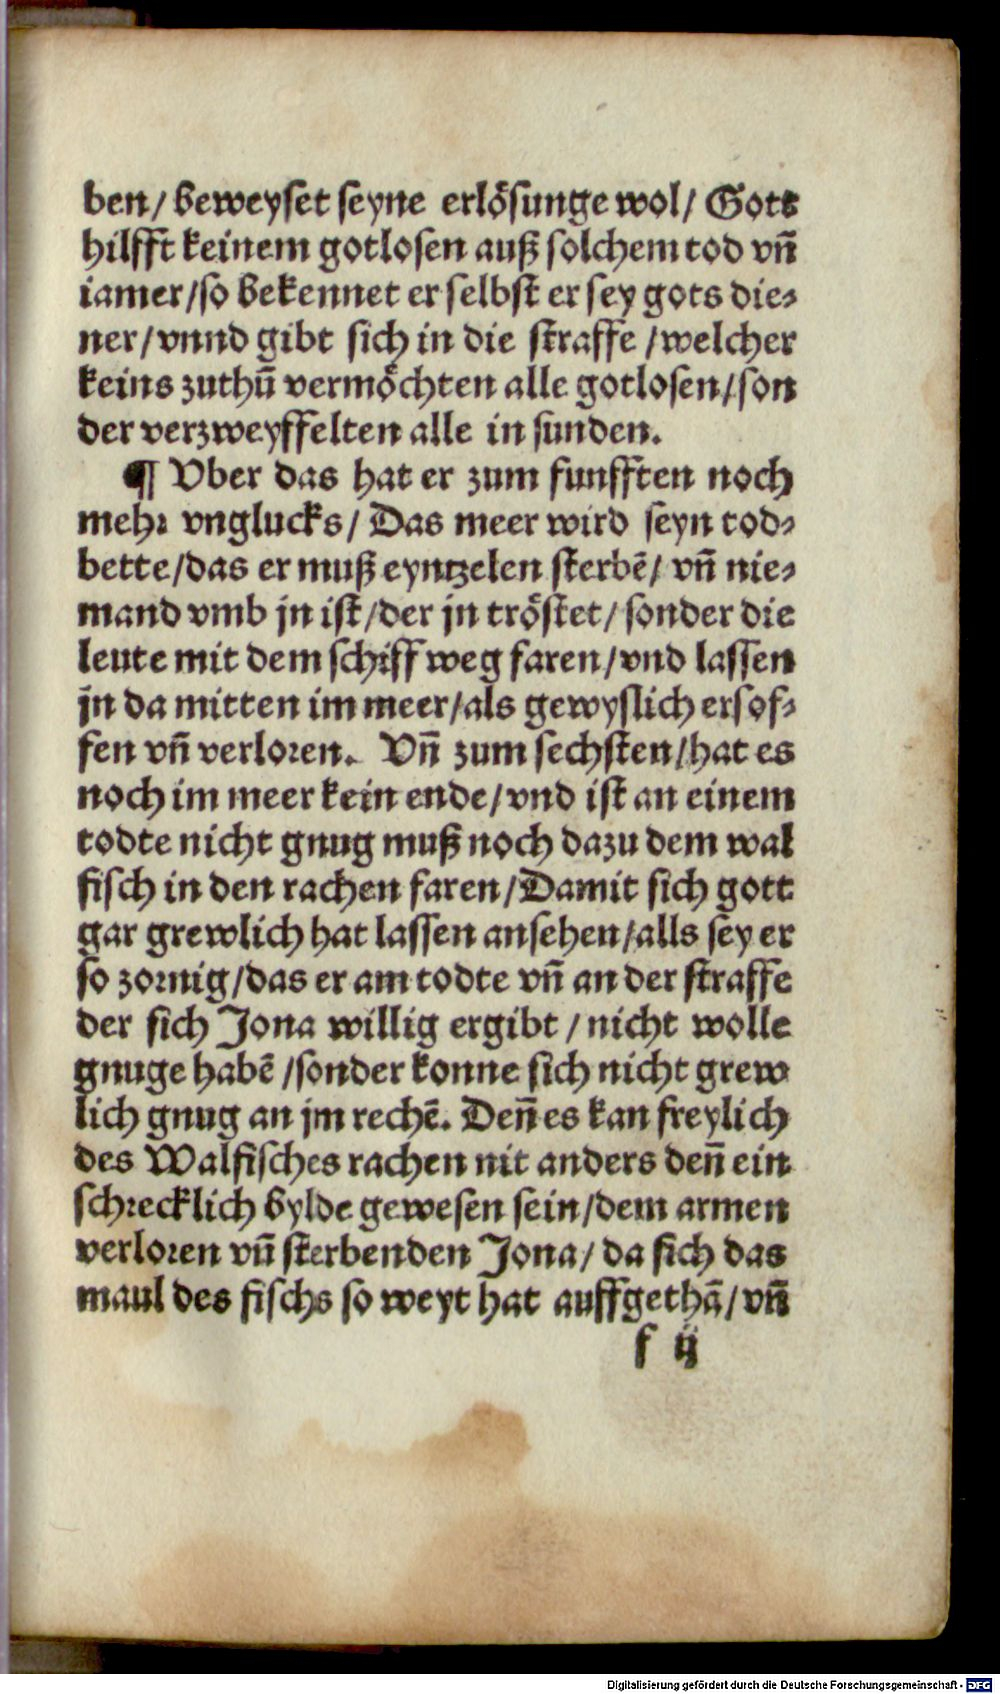 ben/ beweyset seyne erlösunge wol/ Gott
hilfft keinem gotlosen auß solchem tod vñ
iamer/so bekennet er selbst er sey gots die-
ner/vnnd gibt sich in die straffe /welcher
keins zuthũ vermöchten alle gotlosen/son
der verzweyffelten alle in sunden.
¶ Vber das hat er zum funfften noch
mehr vnglucks/ Das meer wird seyn tod-
bette/das er muß eyntzelen sterbẽ/ vñ nie-
mand vmb jn ist/der jn tröstet/ sonder die
leute mit dem schiff weg faren/vnd lassen
jn da mitten im meer/als gewyslich ersof-
fen vñ verloren. Vñ zum sechsten/hat es
noch im meer kein ende/vnd ist an einem
todte nicht gnug muß noch dazu dem wal
fisch in den rachen faren/Damit sich gott
gar grewlich hat lassen ansehen/alls sey er
so zornig/das er am todte vñ an der straffe
der sich Jona willig ergibt / nicht wolle
gnuge habẽ /sonder konne sich nicht grew
lich gnug an jm rechẽ. Deñ es kan freylich
des Walfisches rachen nit anders deñ ein
schrecklich bylde gewesen sein/dem armen
verloren vñ sterbenden Jona/ da sich das
maul des fischs so weyt hat auffgethã/ vñ
f ij
Digitalisierung gefördert durch die Deutsche Forschungsgemeinschaft - DFG